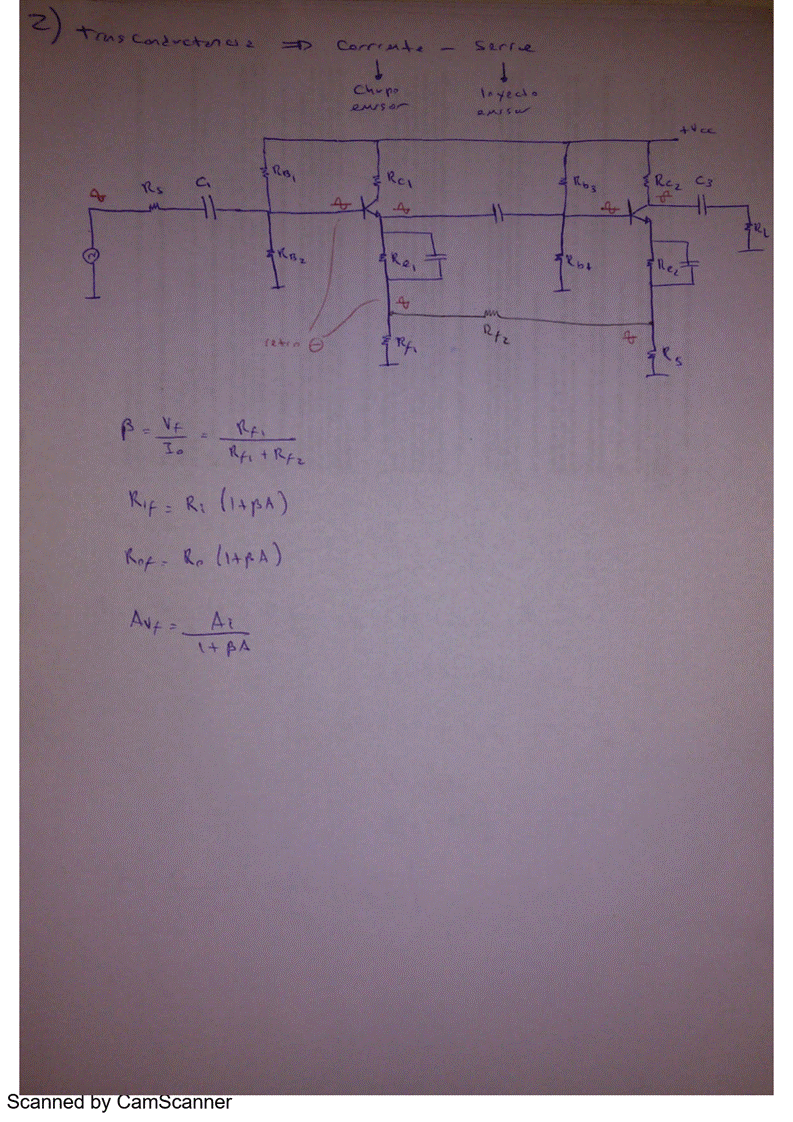 2) transconductancia ⇒ Corriente - Serie
Chupo emisor
Inyecto emisor
+Vcc
Rs C1 RB1 RC1 Rb3 RC2 C3
RL
RB2 Re1 Rb4 Re2
retro ⊖ Rf1 Rf2 Rs
β = Vf / Io = Rf1 / (Rf1 + Rf2)
Rif = Ri (1+βA)
Rof = Ro (1+βA)
Avf = Ai / (1+βA)
Scanned by CamScanner